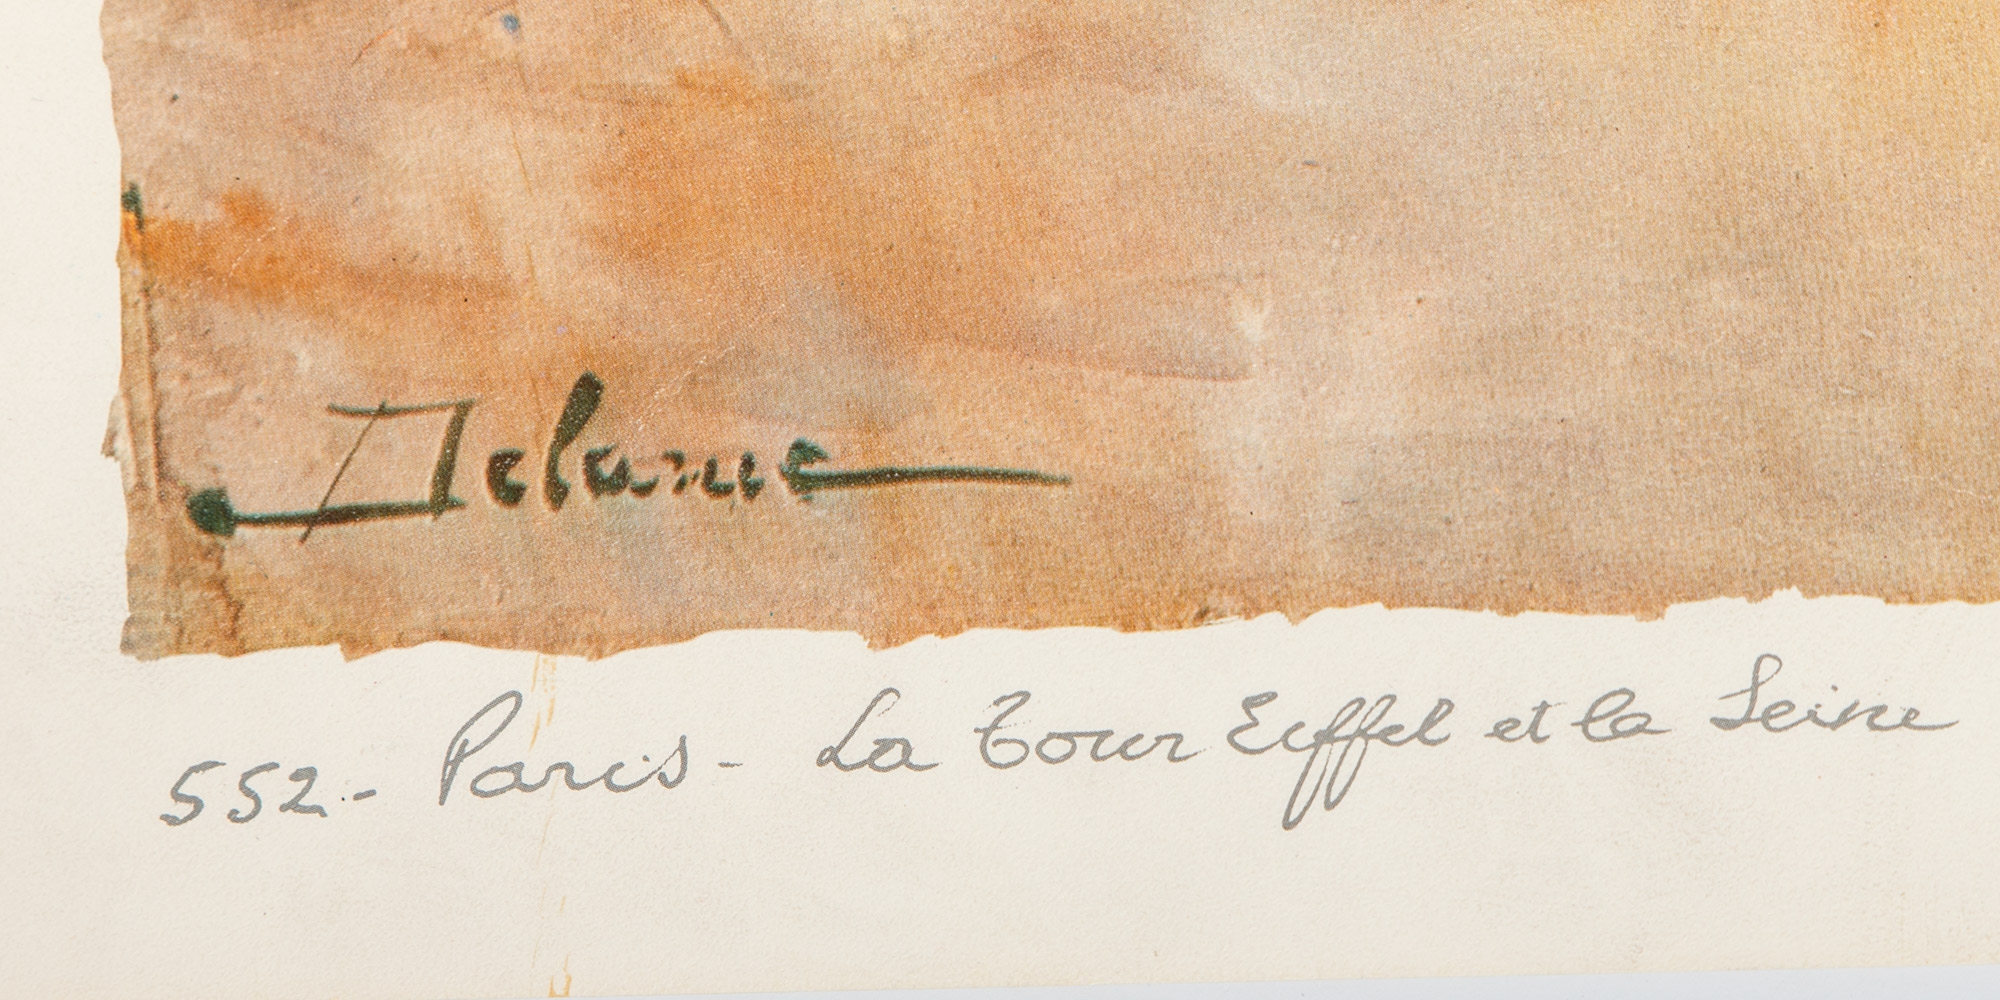 Delarue
552.- Paris - La Tour Eiffel et la Seine